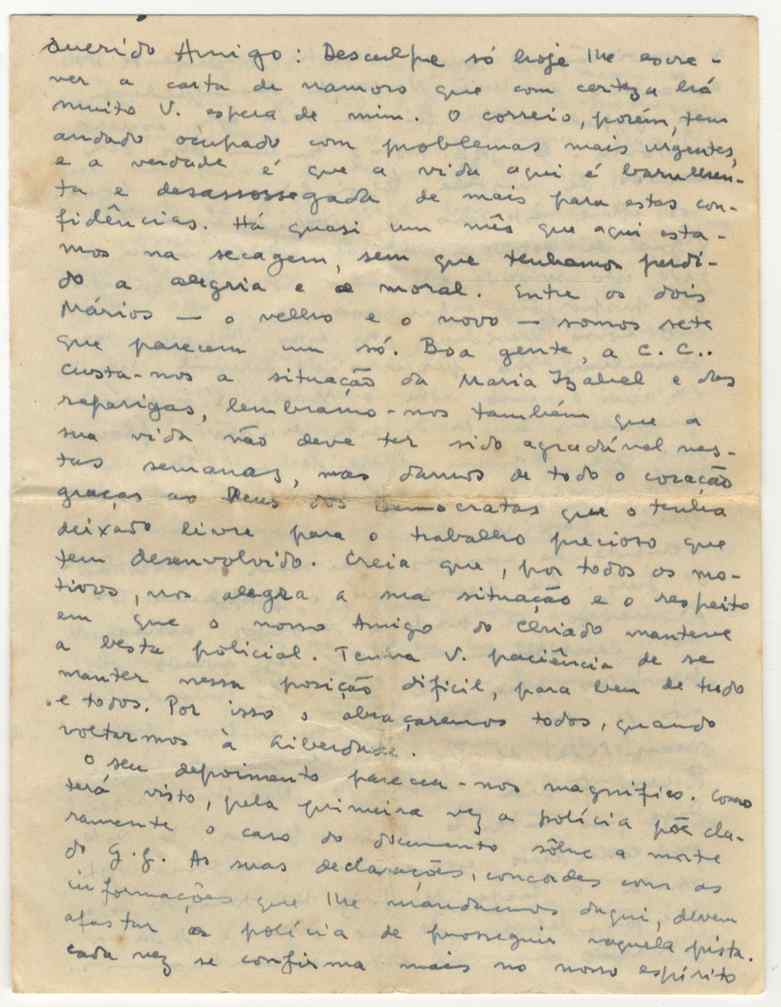 Querido Amigo: Desculpe só hoje lhe escre-
ver a carta de namoro que com certeza há
muito V. espera de mim. O correio, porém, tem
andado ocupado com problemas mais urgentes,
e a verdade é que a vida aqui é barulhen-
ta e desassossegada de mais para estas con-
fidências. Há quasi um mês que aqui esta-
mos na secagem, sem que tenhamos perdi-
do a alegria e a moral. Entre os dois
Mários — o velho e o novo — somos sete
que parecem um só. Boa gente, a C. C..
Custa-nos a situação da Maria Izabel e das
raparigas, lembramo-nos também que a
sua vida não deve ter sido agradável nes-
tas semanas, mas damos de todo o coração
graças ao Deus dos Democratas que o tenha
deixado livre para o trabalho precioso que
tem desenvolvido. Creia que, por todos os mo-
tivos, nos alegra a sua situação e o respeito
em que o nosso Amigo do Chiado manteve
a besta policial. Tenha V. paciência de se
manter nessa posição difícil, para bem de tudo
e todos. Por isso o abraçaremos todos, quando
voltarmos à Liberdade.
O seu depoimento pareceu-nos magnífico. Como
terá visto, pela primeira vez a polícia põe cla-
ramente o caso do documento sôbre a morte
do G. G. As suas declarações, concordes com as
informações que lhe mandamos daqui, devem
afastar a polícia de prosseguir naquela pista.
Cada vez se confirma mais no nosso espírito